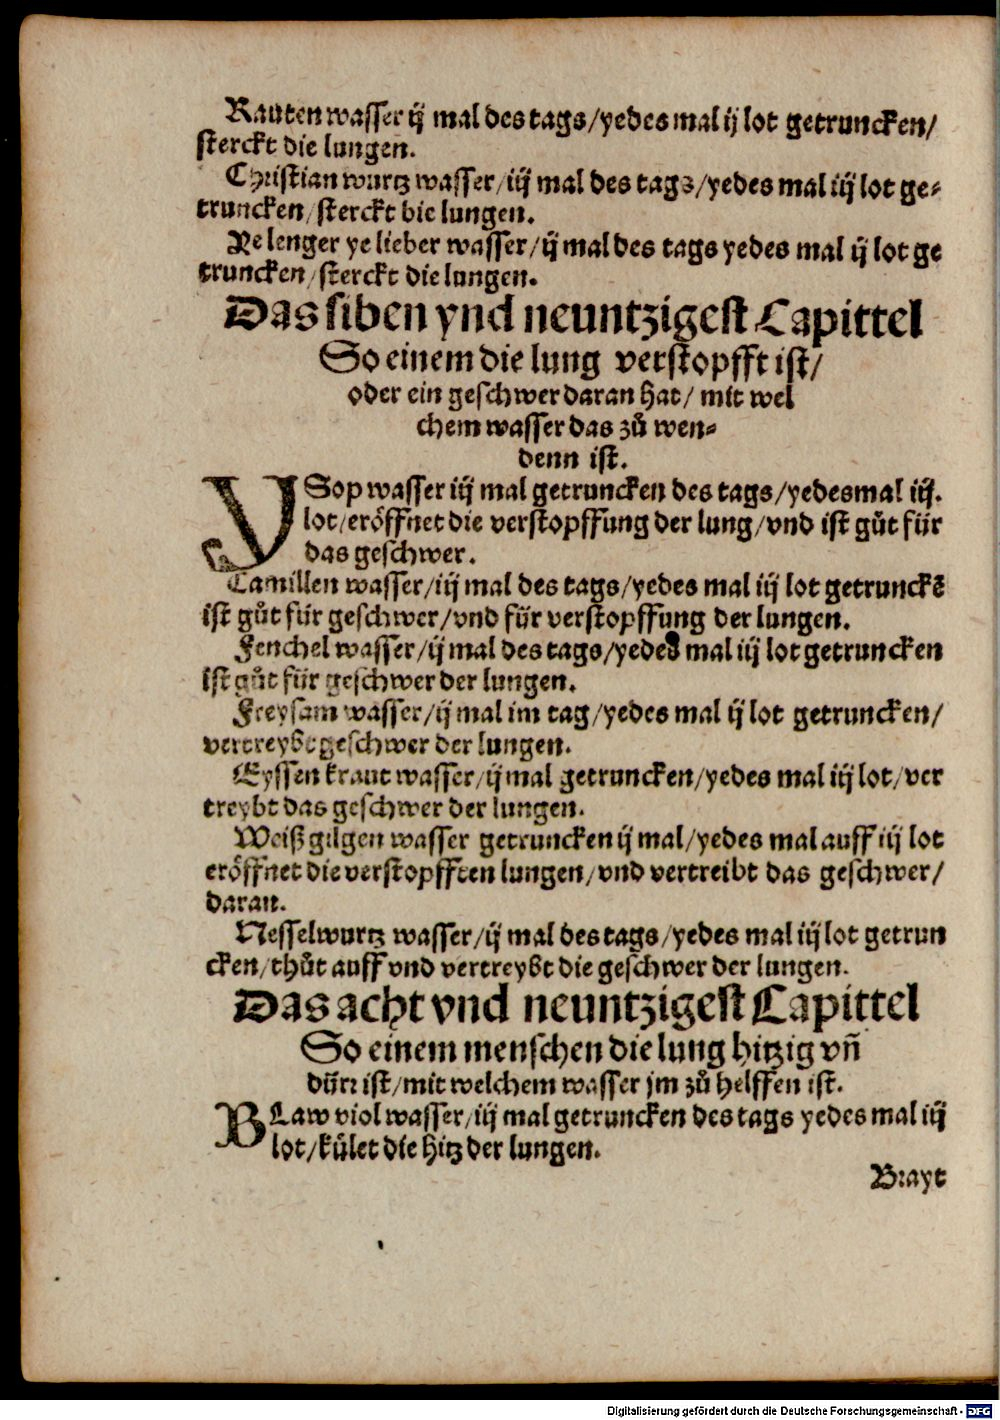 Rauten wasser ij mal des tags/yedes mal ij lot getruncken/
sterckt die lungen.
Christian wurtz wasser/iij mal des tags/yedes mal iij lot ge-
truncken/sterckt bie lungen.
Ye lenger ye lieber wasser/ij mal des tags yedes mal ij lot ge
truncken/sterckt die lungen.
Das siben ynd neuntzigest Capittel
So einem die lung verstopfft ist/
oder ein geschwer daran hat/ mit wel
chem wasser das zů wen-
denn ist.
YSop wasser iij mal getruncken des tags/yedesmal iij.
lot/eröffnet die verstopffung der lung/vnd ist gůt für
das geschwer.
Camillen wasser/iij mal des tags/yedes mal iij lot getrunckẽ
ist gůt für geschwer/vnd für verstopffung der lungen.
Fenchel wasser/ij mal des tags/yedes mal iij lot getruncken
ist gůt für geschwer der lungen.
Freysam wasser/ij mal im tag/yedes mal ij lot getruncken/
vertreybt geschwer der lungen.
Eyssen kraut wasser/ij mal getruncken/yedes mal iij lot/ver
treybt das geschwer der lungen.
Weiß gilgen wasser getruncken ij mal/yedes mal auff iij lot
eröffnet die verstopfften lungen/vnd vertreibt das geschwer/
daran.
Nesselwurtz wasser/ij mal des tags/yedes mal iij lot getrun
cken/thůt auff vnd vertreybt die geschwer der lungen.
Das acht vnd neuntzigest Capittel
So einem menschen die lung hitzig vñ
dürr ist/mit welchem wasser jm zů helffen ist.
BLaw viol wasser/iij mal getruncken des tags yedes mal iij
lot/kület die hitz der lungen.
Brayt
Digitalisierung gefördert durch die Deutsche Forschungsgemeinschaft - DFG